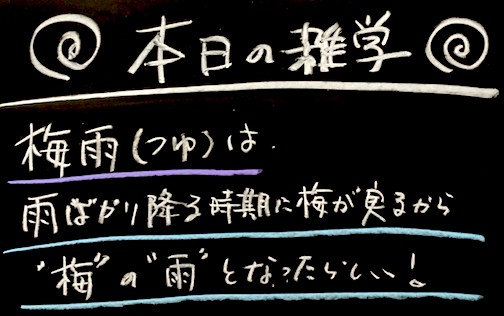 本日の雑学
梅雨(つゆ)は
雨ばかり降る時期に梅が実るから
"梅"の"雨"となったらしい!